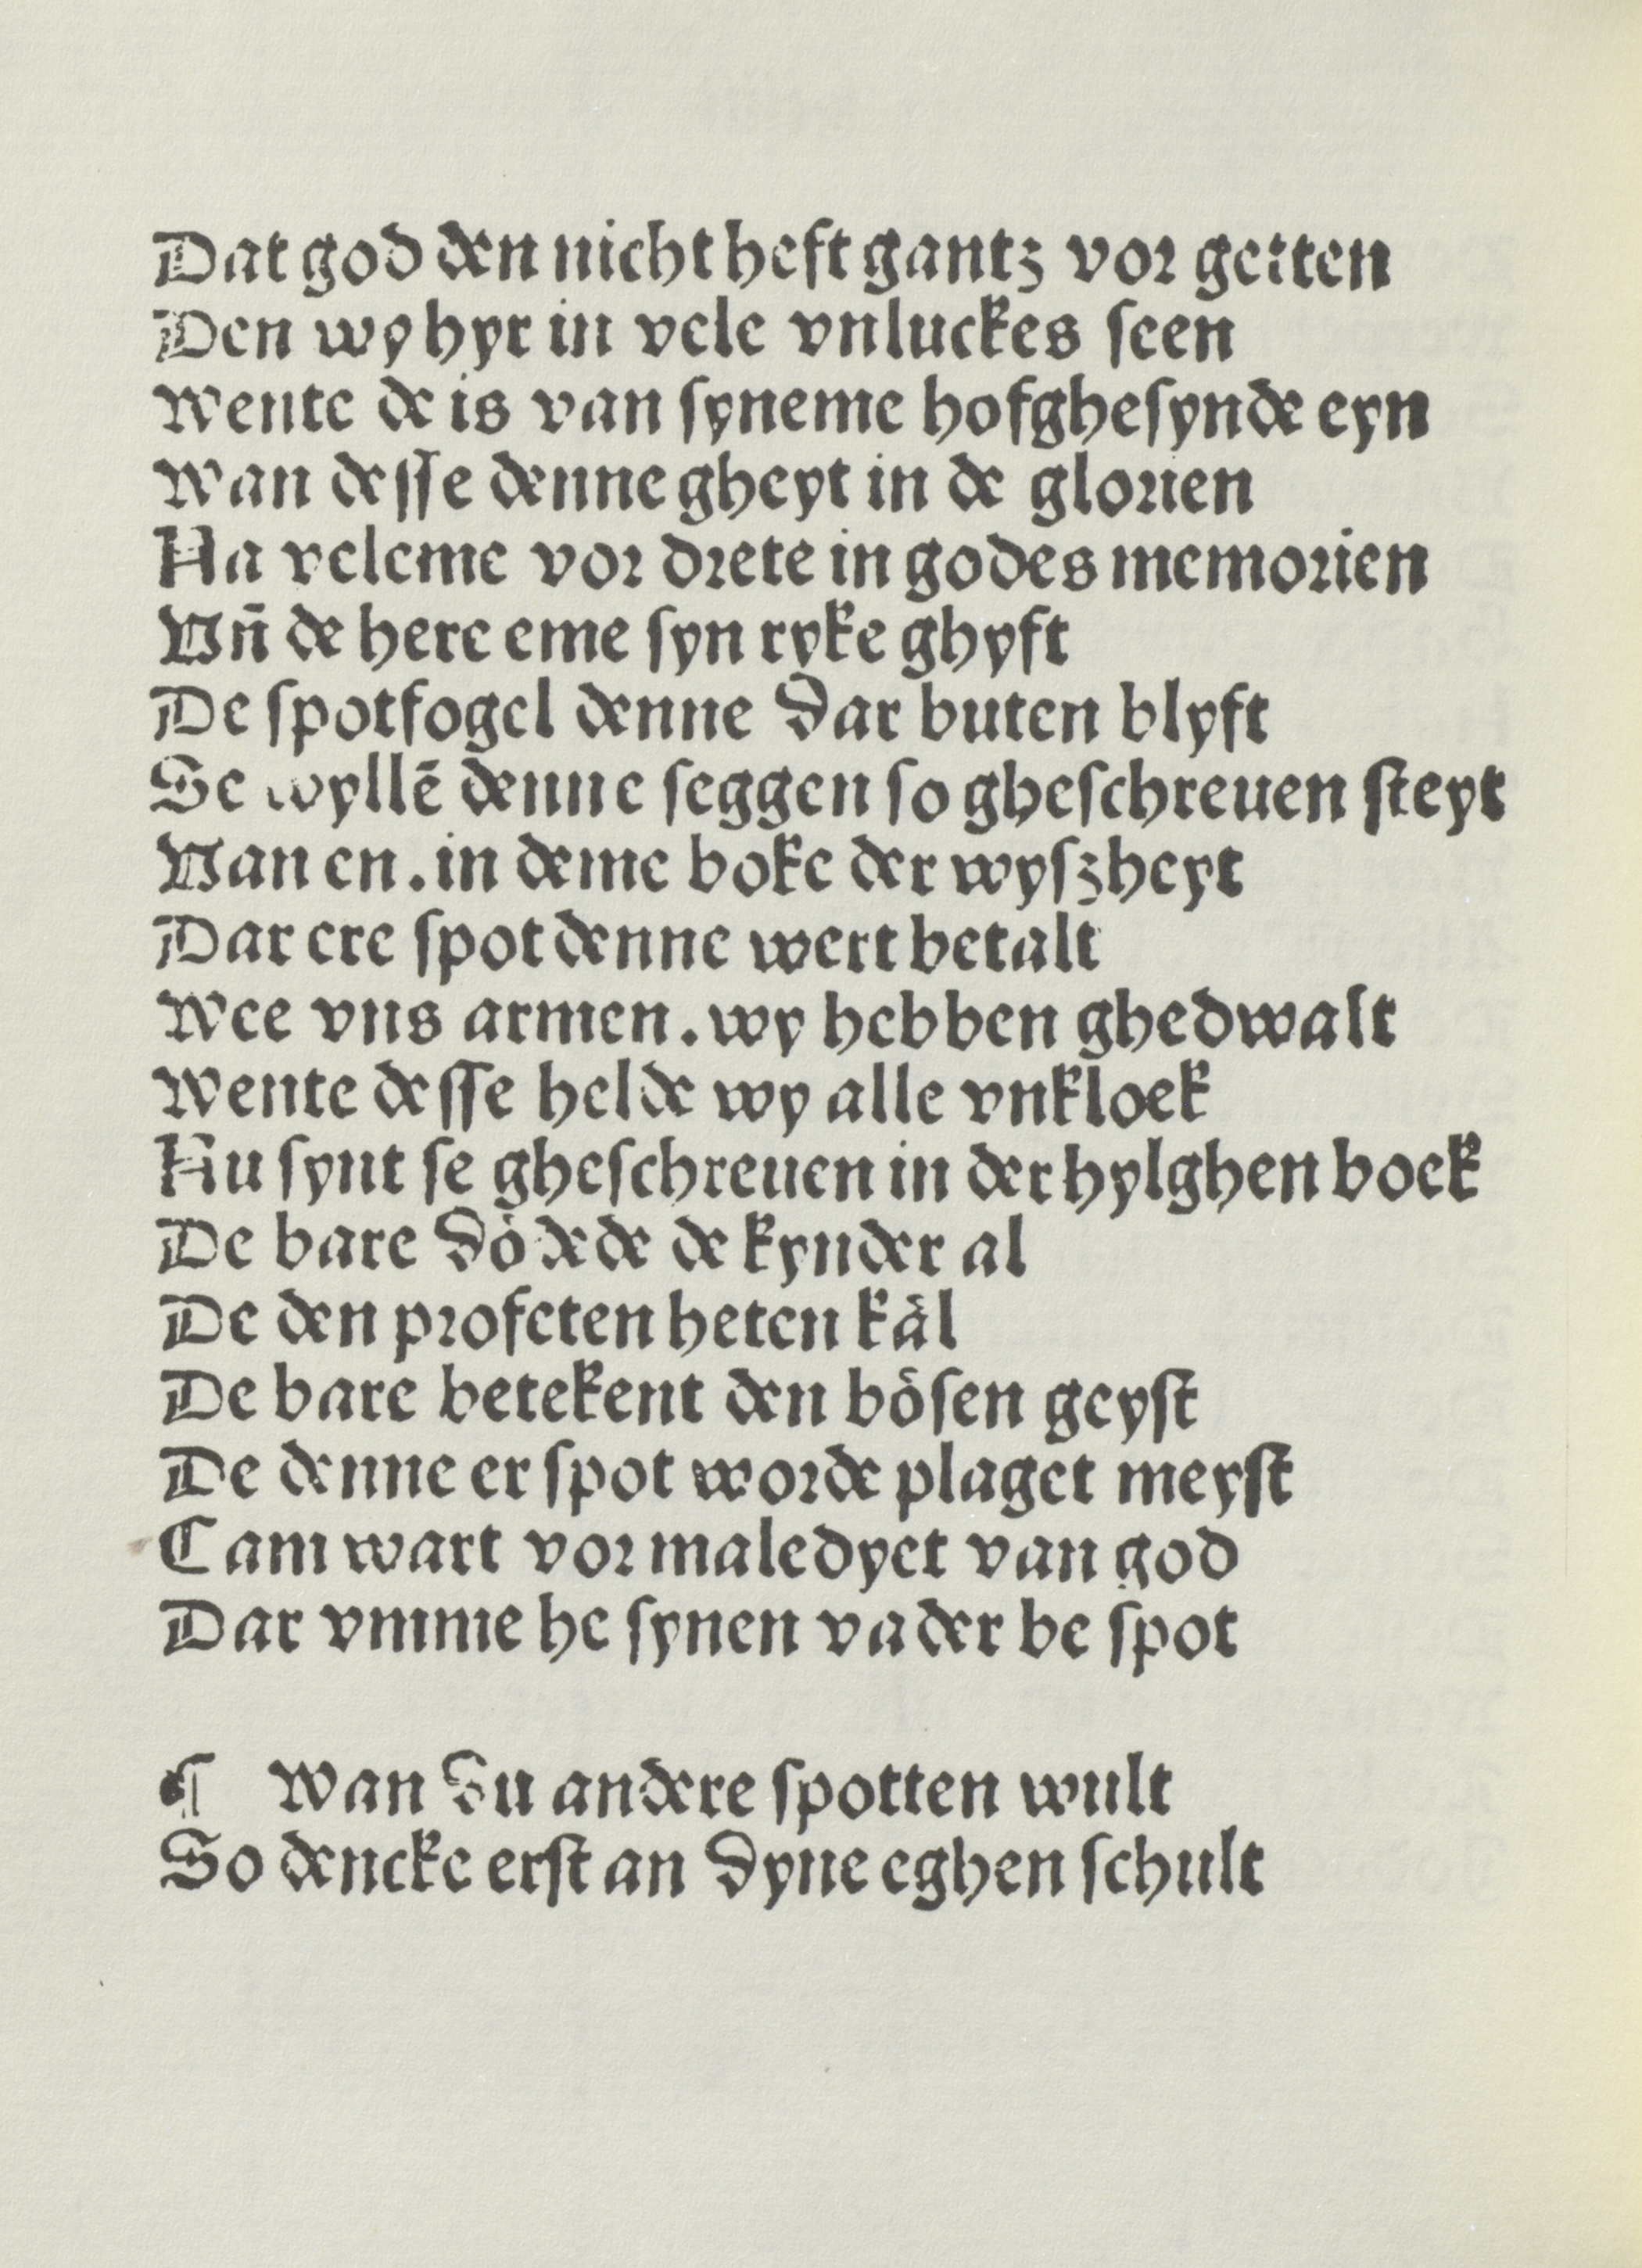 Dat god den nicht heft gantz vor getten
Den wy hyr in vele vnluckes seen
Wente de is van syneme hofghesynde eyn
Wan desse denne gheyt in de glorien
Na veleme vor drete in godes memorien
Vn̄ de here eme syn ryke ghyft
De spotfogel denne dar buten blyft
Se wyllē denne seggen so gheschreuen steyt
Van en. in deme boke der wyszheyt
Dar ere spot denne wert betalt
Wee vns armen. wy hebben ghedwalt
Wente desse helde wy alle vnkloek
Nu synt se gheschreuen in der hylghen boek
De bare dödede de kynder al
De den profeten heten käl
De bare betekent den bösen geyst
De denne er spot worde plaget meyst
Cam wart vor maledyet van god
Dar vmme he synen vader be spot
¶ Wan du andere spotten wult
So dencke erst an dyne eghen schult